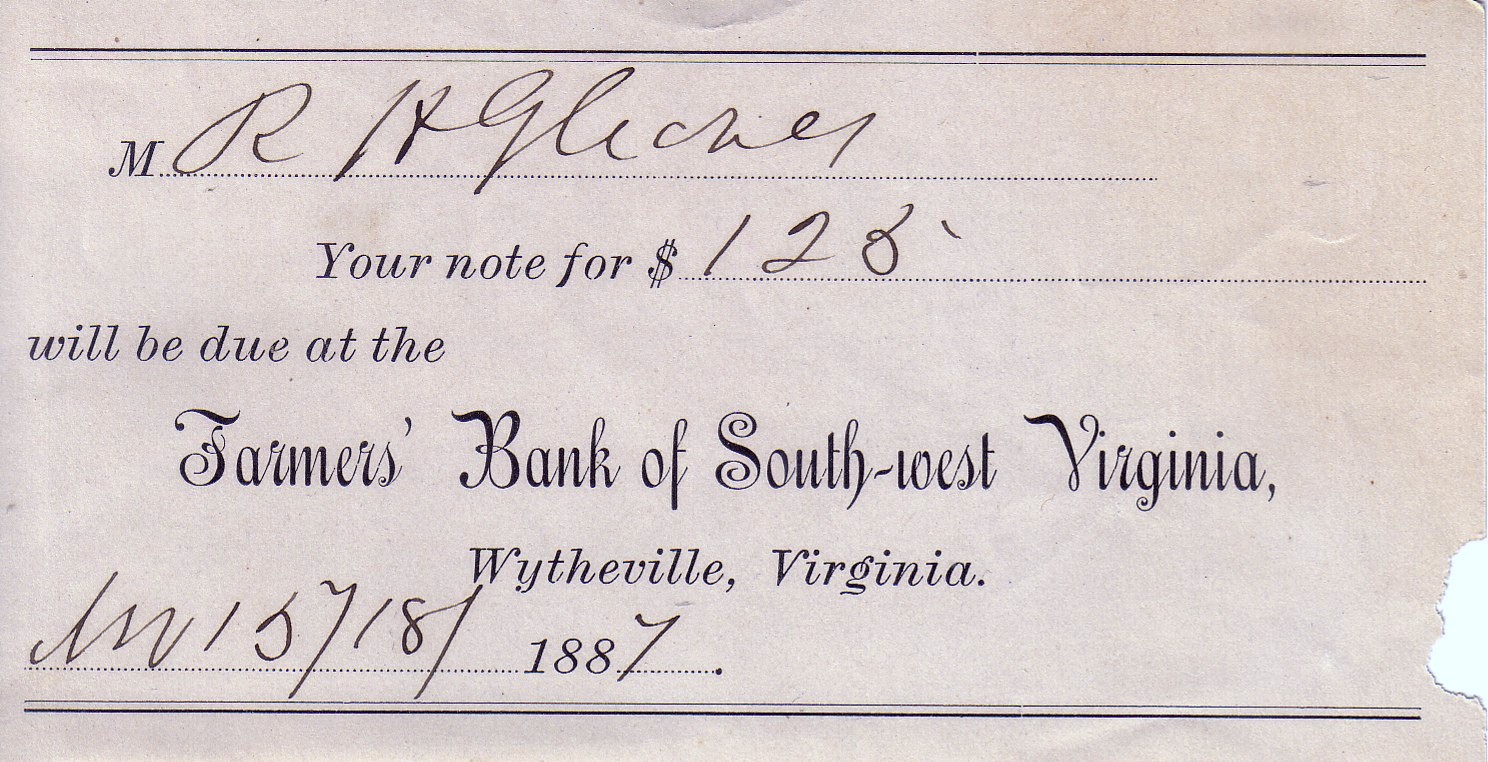 M R H Gleaves
Your note for $ 125
will be due at the
Farmers' Bank of South-west Virginia,
Wytheville, Virginia.
Nov 15/18/ 1887.